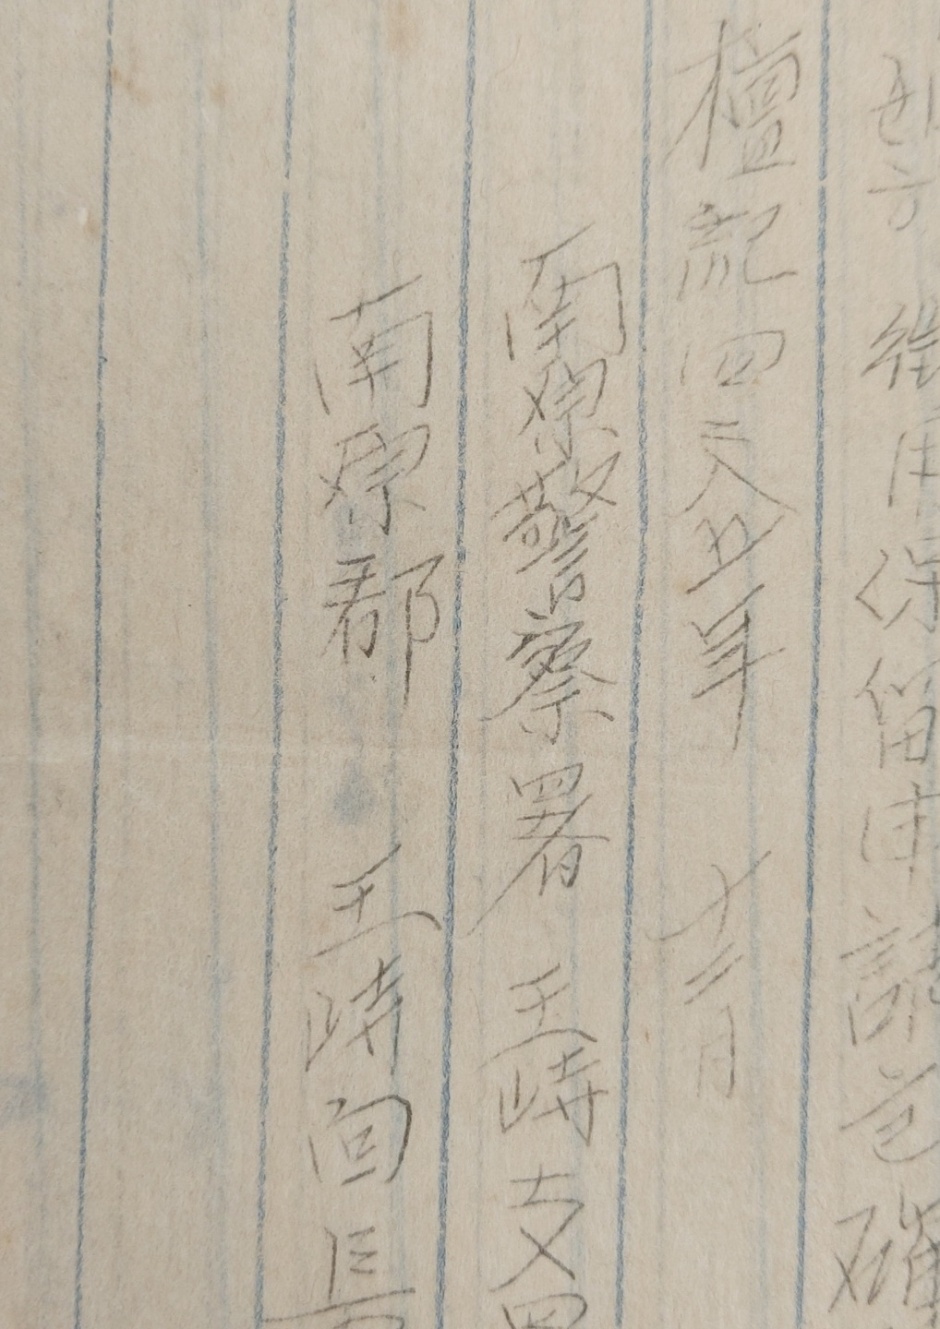 用保留申請
檀紀四二八五年 十二月
南原警察署 王峙支
南原郡 王峙面長